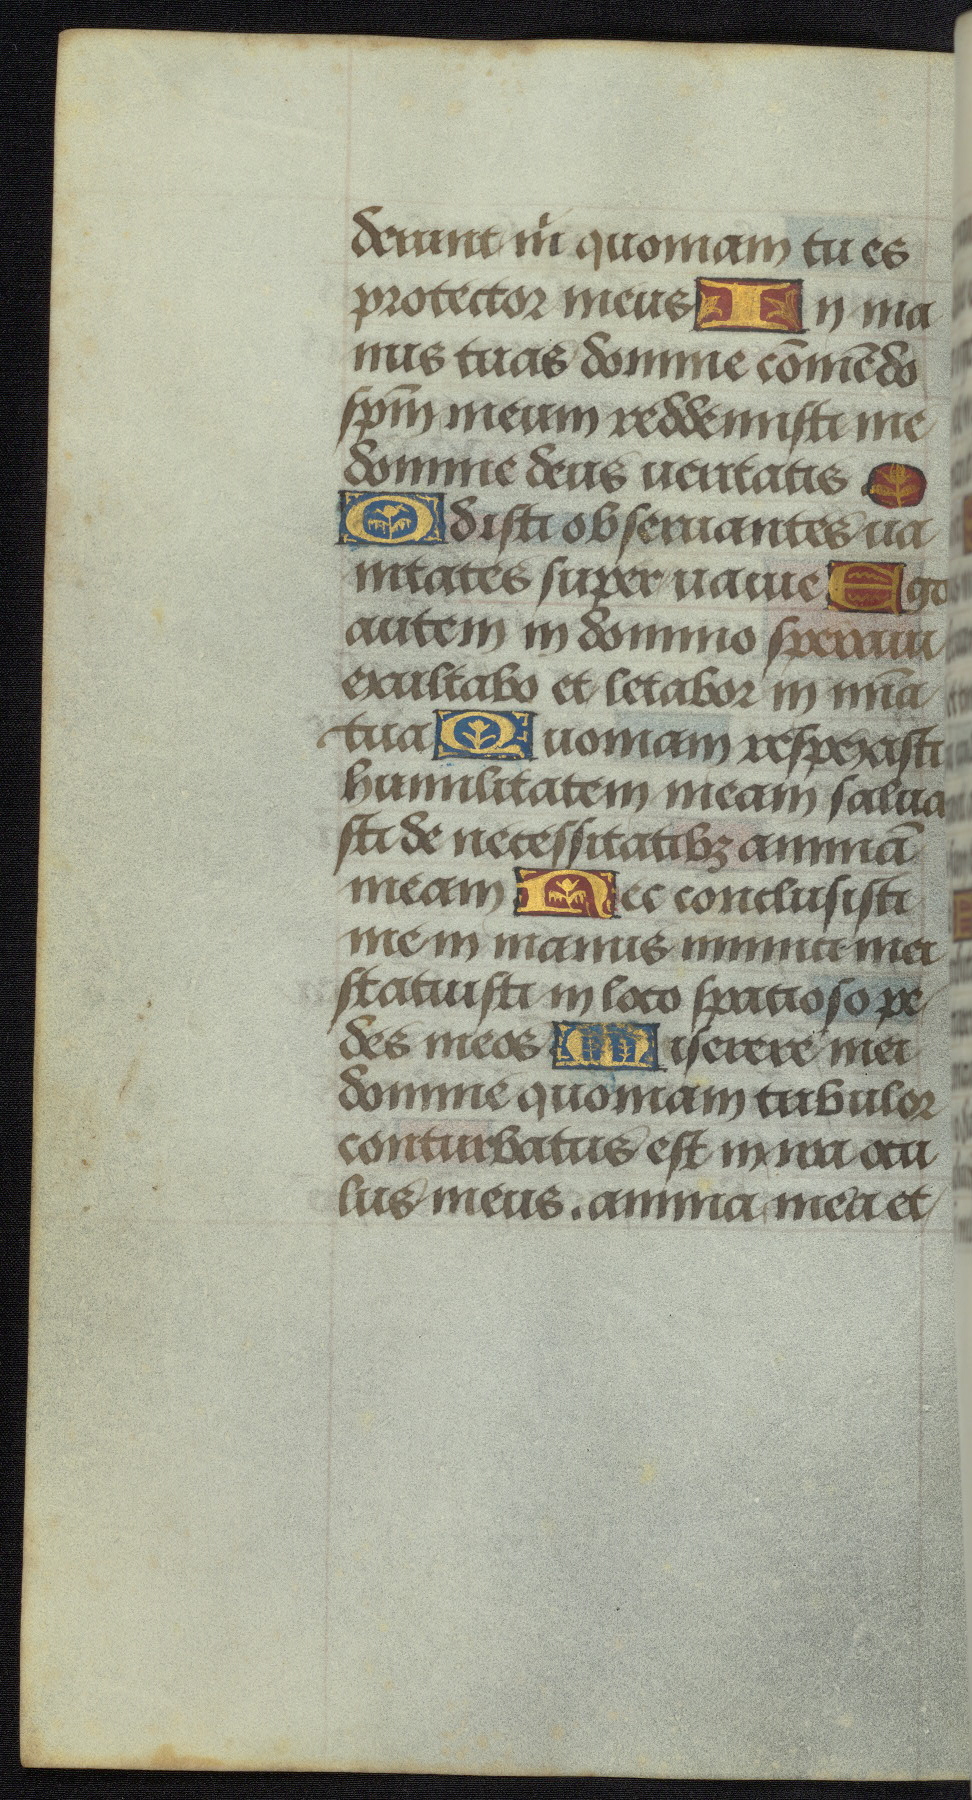 derunt m̄ quoniam tu es
protector meus In ma
nus tuas domine cōmēdo
sp̄m meum reddemisti me
domine deus ueritatis
Odisti obseruantes ua
nitates super uacue Ego
autem in domino speraui
exultabo et letabor in mīa
tua Quoniam respexisti
humilitatem meam salua
sti de necessitatibꝫ animā
meam Nec conclusisti
me in manus inimici mei
statuisti in loco spatioso pe
des meos Miserere mei
domine quoniam tribulor
conturbatus est in ira ocu
lus meus. anima mea et